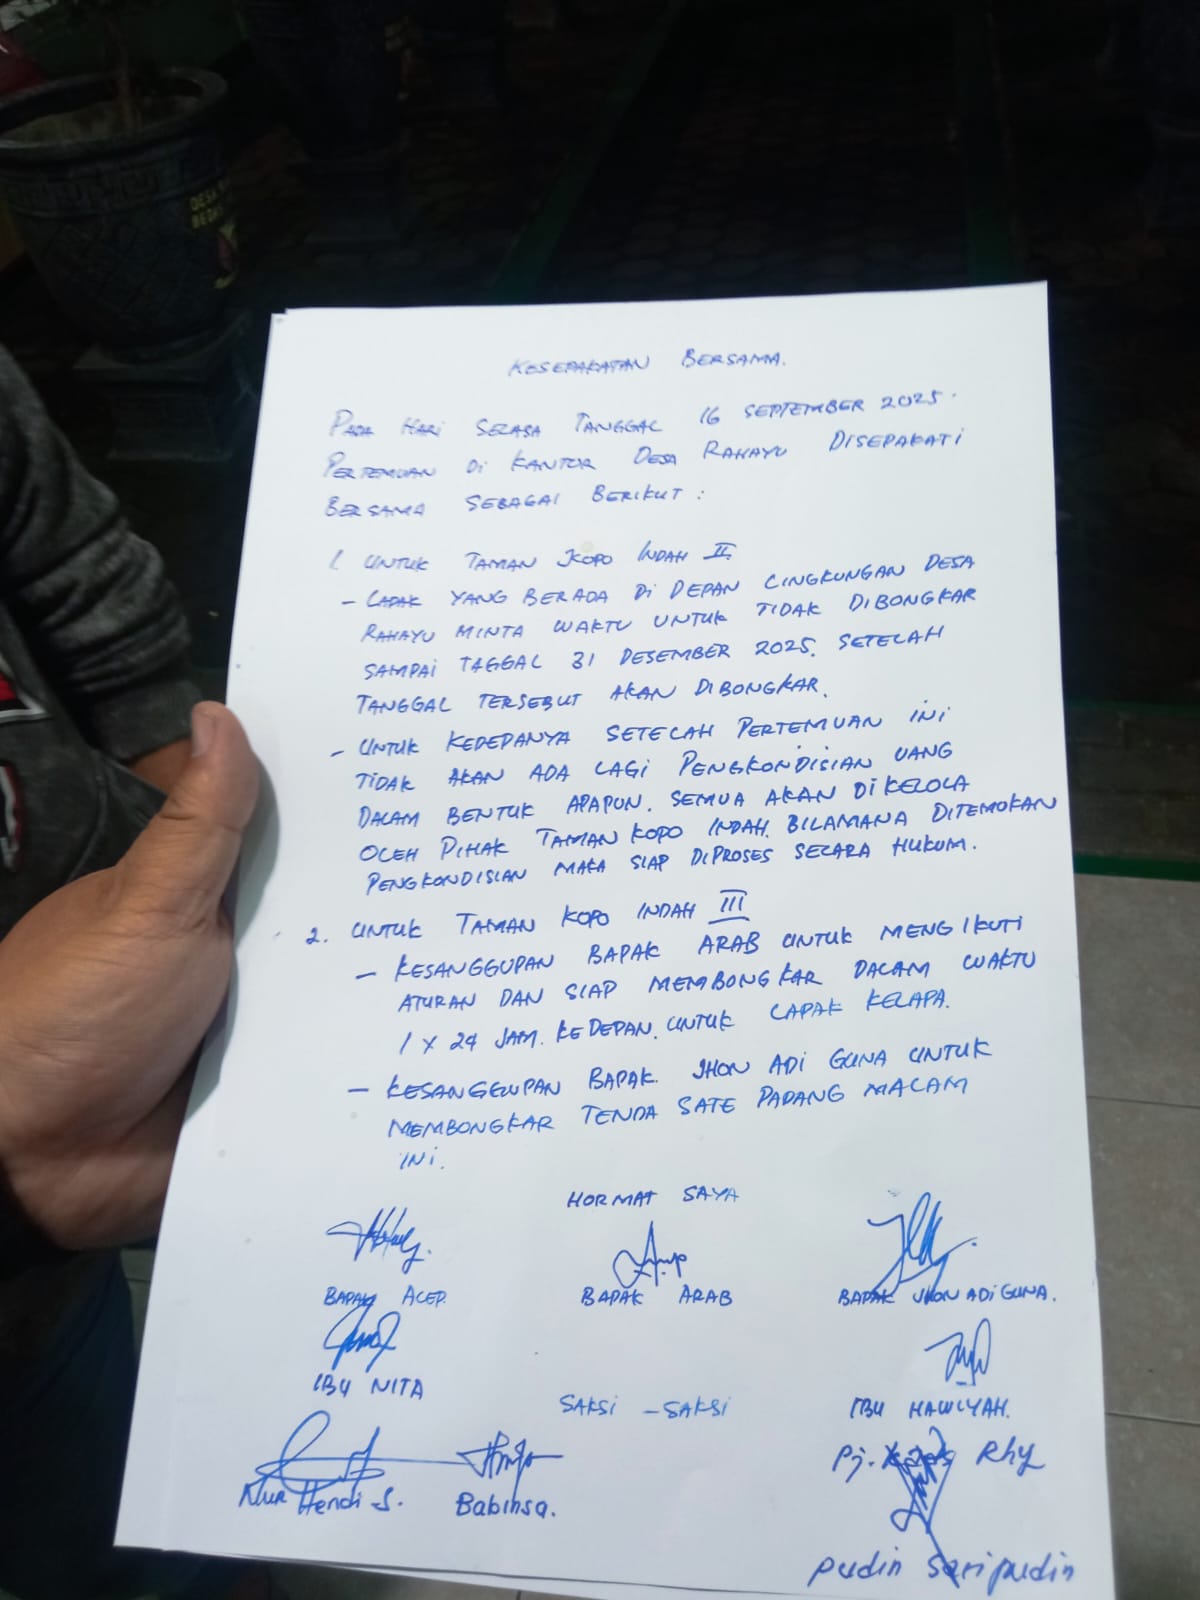 DESA RA
BEDAS
KESEPAKATAN BERSAMA.
PADA HARI SELASA TANGGAL 16 SEPTEMBER 2025.
PERTEMUAN DI KANTOR DESA RAHAYU DISEPAKATI
BERSAMA SEBAGAI BERIKUT :
1. UNTUK TAMAN KOPO INDAH II.
- LAPAK YANG BERADA DI DEPAN LINGKUNGAN DESA
RAHAYU MINTA WAKTU UNTUK TIDAK DIBONGKAR
SAMPAI TAGGAL 31 DESEMBER 2025. SETELAH
TANGGAL TERSEBUT AKAN DIBONGKAR.
- UNTUK KEDEPANYA SETELAH PERTEMUAN INI
TIDAK AKAN ADA LAGI PENGKONDISIAN UANG
DALAM BENTUK APAPUN. SEMUA AKAN DI KELOLA
OLEH PIHAK TAMAN KOPO INDAH. BILAMANA DITEMUKAN
PENGKONDISIAN MAKA SIAP DIPROSES SECARA HUKUM.
2. UNTUK TAMAN KOPO INDAH III
- KESANGGUPAN BAPAK ARAB UNTUK MENGIKUTI
ATURAN DAN SIAP MEMBONGKAR DALAM WAKTU
1 X 24 JAM. KEDEPAN. UNTUK LAPAK KELAPA.
- KESANGGUPAN BAPAK. JHON ADI GUNA UNTUK
MEMBONGKAR TENDA SATE PADANG MALAM
INI.
HORMAT SAYA
BAPAK ACEP. BAPAK ARAB BAPAK JHON ADI GUNA.
IBU NITA SAKSI - SAKSI IBU HAWLYAH.
Pj. Kades Rhy
Nur Hendi S. Babinsa.
pudin Saripudin